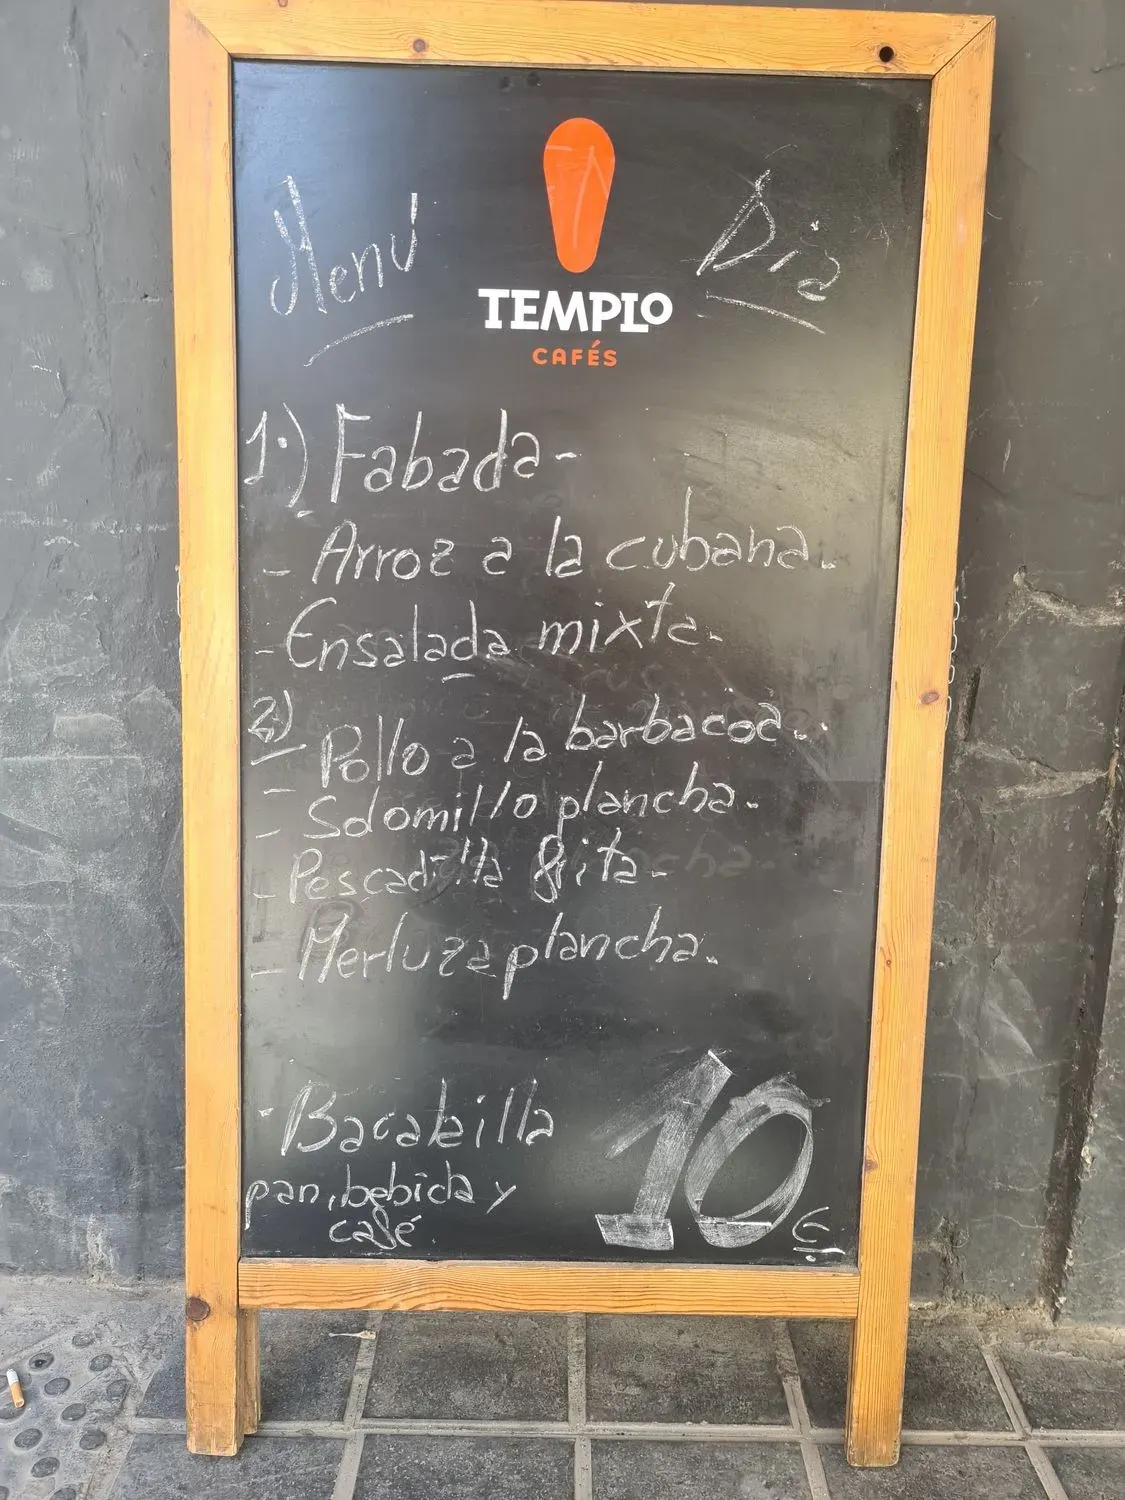 Menú Día
TEMPLO
CAFÉS
1.) Fabada-
- Arroz a la cubana.
- Ensalada mixta.
2) Pollo a la barbacoa.
- Solomillo plancha.
- Pescadilla frita.
- Merluza plancha.
- Bacakilla
pan, bebida y
café
10€